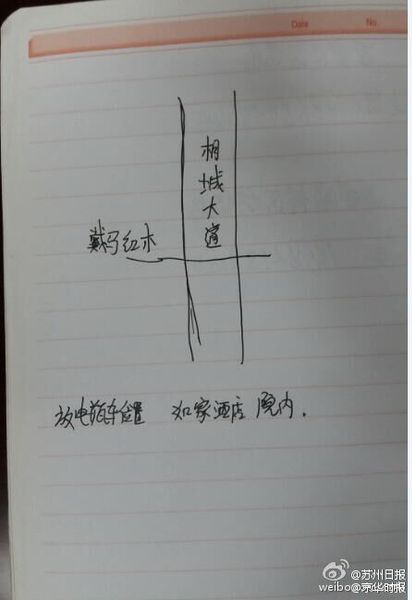 Date No.
相城大道
戴马红木
放电瓶车位置 如家酒店院内.
@苏州日报
weibo@京华时报